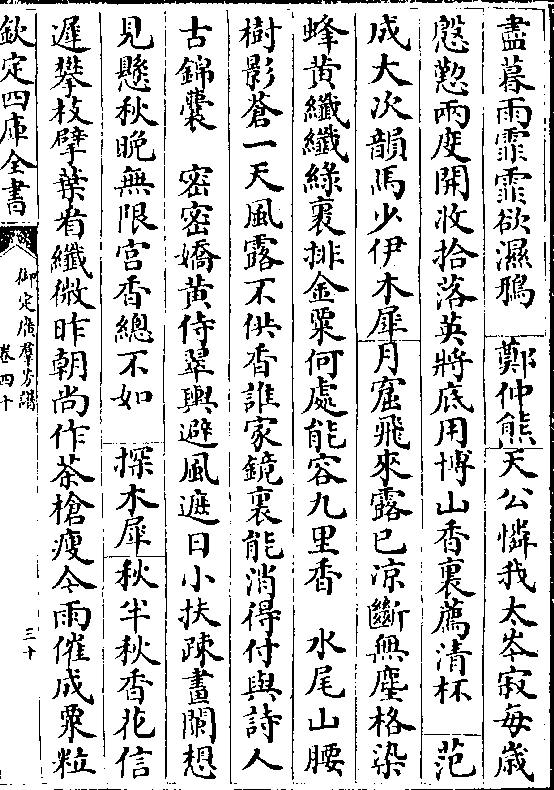 盡暮雨霏霏欲濕鴉　鄭仲熊天公憐我太岑寂每歳
慇懃兩度開收拾落英將底用博山香裏薦清杯　范
成大次韻馬少伊木犀月窟飛來露已涼斷無塵格染
蜂黄纖纖緑裹排金粟何處能容九里香　水尾山腰
樹影蒼一天風露不供香誰家鏡裏能消得付與詩人
古錦囊　密密嬌黄侍翠輿避風遮日小扶疎畫闌想
見懸秋晩無限宫香總不如　探木犀秋半秋香花信
遲攀枝擘葉㸔纖微昨朝尚作茶槍瘦今雨催成粟粒
欽定四庫全書
御定廣羣芳譜
卷四十
三十